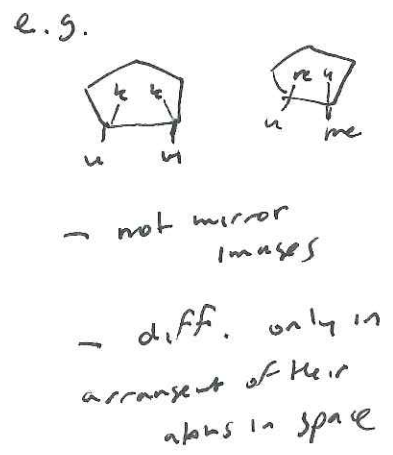 e.g.
me H
H me
- not mirror
images
- diff. only in
arrangent of their
atoms in space